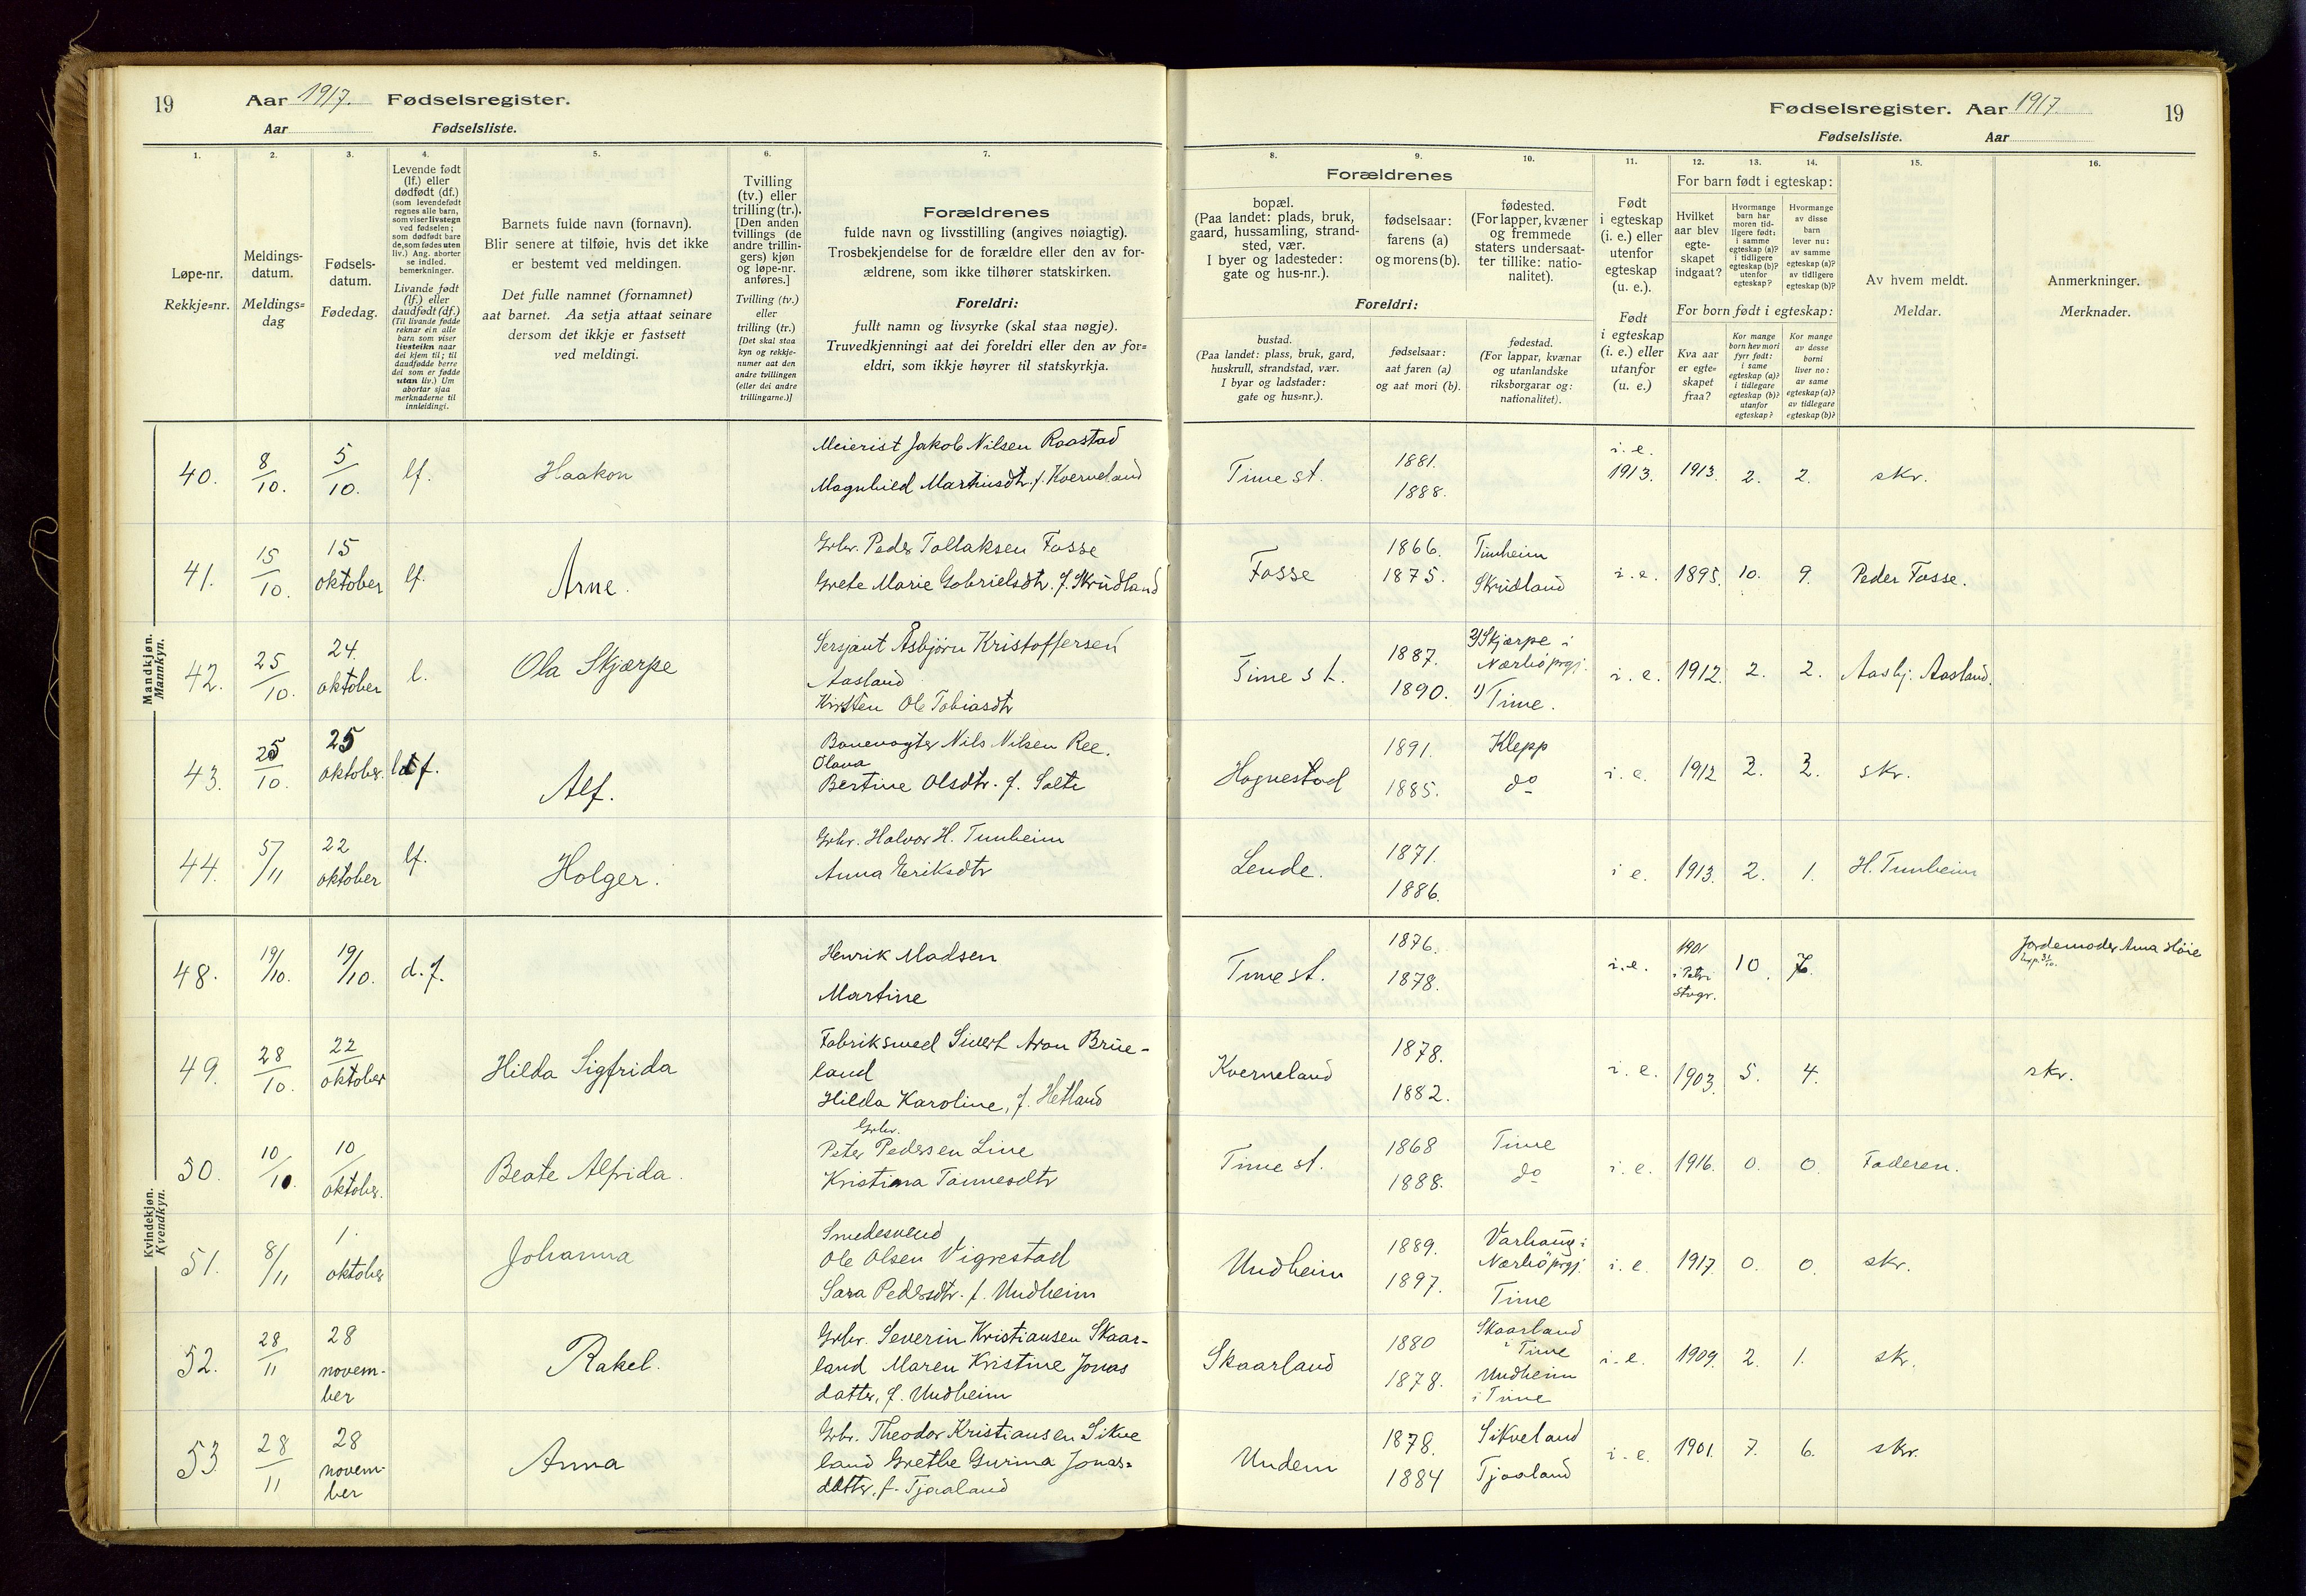 19 Aar 1917. Fødselsregister.
Aar Fødselsliste.
Fødselsregister. Aar 1917. 19
Fødselsliste. Aar
1. 2. 3. 4. 5. 6. 7.
Løpe-nr.
Rekkje=nr.
Meldings-
datum.
Meldings=
dag
Fødsels-
datum.
Fødedag.
Levende født
(lf.) eller
dødfødt (df.)
(som levendefødt
regnes alle barn,
som viser livstegn
ved fødselen;
som dødfødt bare
de, som fødes uten
liv.) Ang. aborter
se indled.
bemerkninger.
Livande født
(lf.) eller
daudfødt (df.)
(Til livande fødde
reknar ein alle
barn som viser
livsteikn naar
dei kjem til; til
daudfødde berre
dei som er fødde
utan liv.) Um
abortar sjaa
merknaderne til
innleidingi.
Barnets fulde navn (fornavn).
Blir senere at tilføie, hvis det ikke
er bestemt ved meldingen.
Det fulle namnet (fornamnet)
aat barnet. Aa setja attaat seinare
dersom det ikkje er fastsett
ved meldingi.
Tvilling
(tv.) eller
trilling (tr.).
[Den anden
tvillings (de
andre trillin-
gers) kjøn
og løpe-nr.
anføres.]
Tvilling (tv.)
eller
trilling (tr.)
[Det skal staa
kyn og rekkje-
numer aat den
andre tvillingen
(eller dei andre
trillingarne.)]
Forældrenes
fulde navn og livsstilling (angives nøiagtig).
Trosbekjendelse for de forældre eller den av for-
ældrene, som ikke tilhører statskirken.
Foreldri:
fullt namn og livsyrke (skal staa nøgje).
Truvedkjenningi aat dei foreldri eller den av for=
eldri, som ikkje høyrer til statskyrkja.
8. 9. 10. 11. 12. 13. 14. 15. 16.
Forældrenes
bopæl.
(Paa landet: plads, bruk,
gaard, hussamling, strand-
sted, vær.
I byer og ladesteder:
gate og hus-nr.).
fødselsaar:
farens (a)
og morens (b).
fødested.
(For lapper, kvæner
og fremmede
staters undersaat-
ter tillike: natio-
nalitet).
Foreldri:
bustad.
(Paa landet: plass, bruk, gard,
huskrull, strandstad, vær.
I byar og ladstader:
gate og hus=nr.).
fødselsaar:
aat faren (a)
og aat mori (b).
fødestad.
(For lappar, kvænar
og utanlandske
riksborgarar og:
nationalitet).
Født
i egteskap
(i. e.) eller
utenfor
egteskap
(u. e.).
Født
i egteskap
(i. e.) eller
utanfor
(u. e.)
For barn født i egteskap:
Hvilket
aar blev
egte-
skapet
indgaat?
Hvormange
barn har
moren tid-
ligere født:
i samme
egteskap (a)?
i tidligere
egteskap (b)?
utenfor
egteskap?
Hvormange
av disse
barn
lever nu:
av samme
egteskap (a)?
av tidligere
egteskap (b)?
For born født i egteskap:
Kva aar
er egte=
skapet
fraa?
Kor mange
born hev mori
fyrr født:
i same
egteskap (a)?
i tidlegare
egteskap (b)?
utanfor
egteskap?
Kor mange
av desse
borni
liver no:
av same
egteskap (a)?
av tidlegare
egteskap (b)?
Av hvem meldt.
Meldar.
Anmerkninger.
Merknader.
Mandkjøn.
Mannkyn.
40. 8/10. 5/10. lf. Haakon
Meierist Jakob Nilsen Raastad
Magnhild Martinsdtr. f. Kverneland
Time st. 1881. 1888. i. e. 1913. 1913. 2. 2. skr.
41. 15/10. 15 oktober lf. Arne.
Grbr. Peder Tollaksen Fosse
Grete Marie Gabrielsdtr. f. Skrudland
Fosse 1866. 1875. Tunheim Skrudland i. e. 1895. 10. 9. Peder Fosse.
42. 25/10. 24. oktober l. Ola Skjærpe
Sersjant Åsbjørn Kristoffersen
Aasland
Kirsten Ole Tobiasdtr
Time st. 1887. 1890. 2) Skjærpe i
Nærbö prgj.
1) Time. i. e. 1912. 2. 2. Aasbj. Aasland.
43. 25/10. 25 oktober. f. Alf.
Banevogter Nils Nilsen Ree.
Olava
Bertine Olsdtr. f. Salte
Hognestad 1891. 1885. Klepp do i. e. 1912 2. 2. skr.
44. 5/11 22 oktober lf. Holger.
Grbr. Halvor H. Tunheim
Anna Eriksdtr
Lende. 1871. 1886. i e. 1913. 2. 1. H. Tunheim
Kvindekjøn.
Kvendkyn.
48. 19/10. 19/10. d. f.
Henrik Madsen
Martine
Time st. 1876. 1878. i. e. 1901
i Petri
Stvgr. 10. 7. Jordemoder Anna Höie
49. 28/10. 22 oktober Hilda Sigfrida
Fabriksmed Sivert Aron Brue-
land
Hilda Karoline, f. Hetland
Kverneland 1878. 1882. i. e. 1903. 5. 4. skr.
50. 10/10. 10 oktober. Beate Alfrida.
Grbr.
Peter Pedersen Line
Kristina Tønnesdtr
Time st. 1868 1888. Time do i. e. 1916. 0. 0. Faderen.
51. 8/11 1. oktober Johanna
Smedesvend
Ole Olsen Vigrestad
Sara Pedersdtr. f. Undheim
Undheim 1889. 1897. Varhaug i
Nærbö prgj.
Time i. e. 1917. 0. 0. skr.
52. 28/11 28 novem-
ber Rakel.
Grbr. Severin Kristiansen Skaar-
land Maren Kristine Jonas
datter, f. Undheim
Skaarland 1880 1878. Skaarland
i Time
Undheim
i Time i. e. 1909. 2. 1. skr.
53. 28/11 28 novem-
ber Anna
Grbr. Theodor Kristiansen Sikve
land Grethe Gurina Jonas=
datter, f. Tjaaland
Undem 1878. 1884 Sikveland
Tjaaland i. e. 1901. 7. 6. skr.